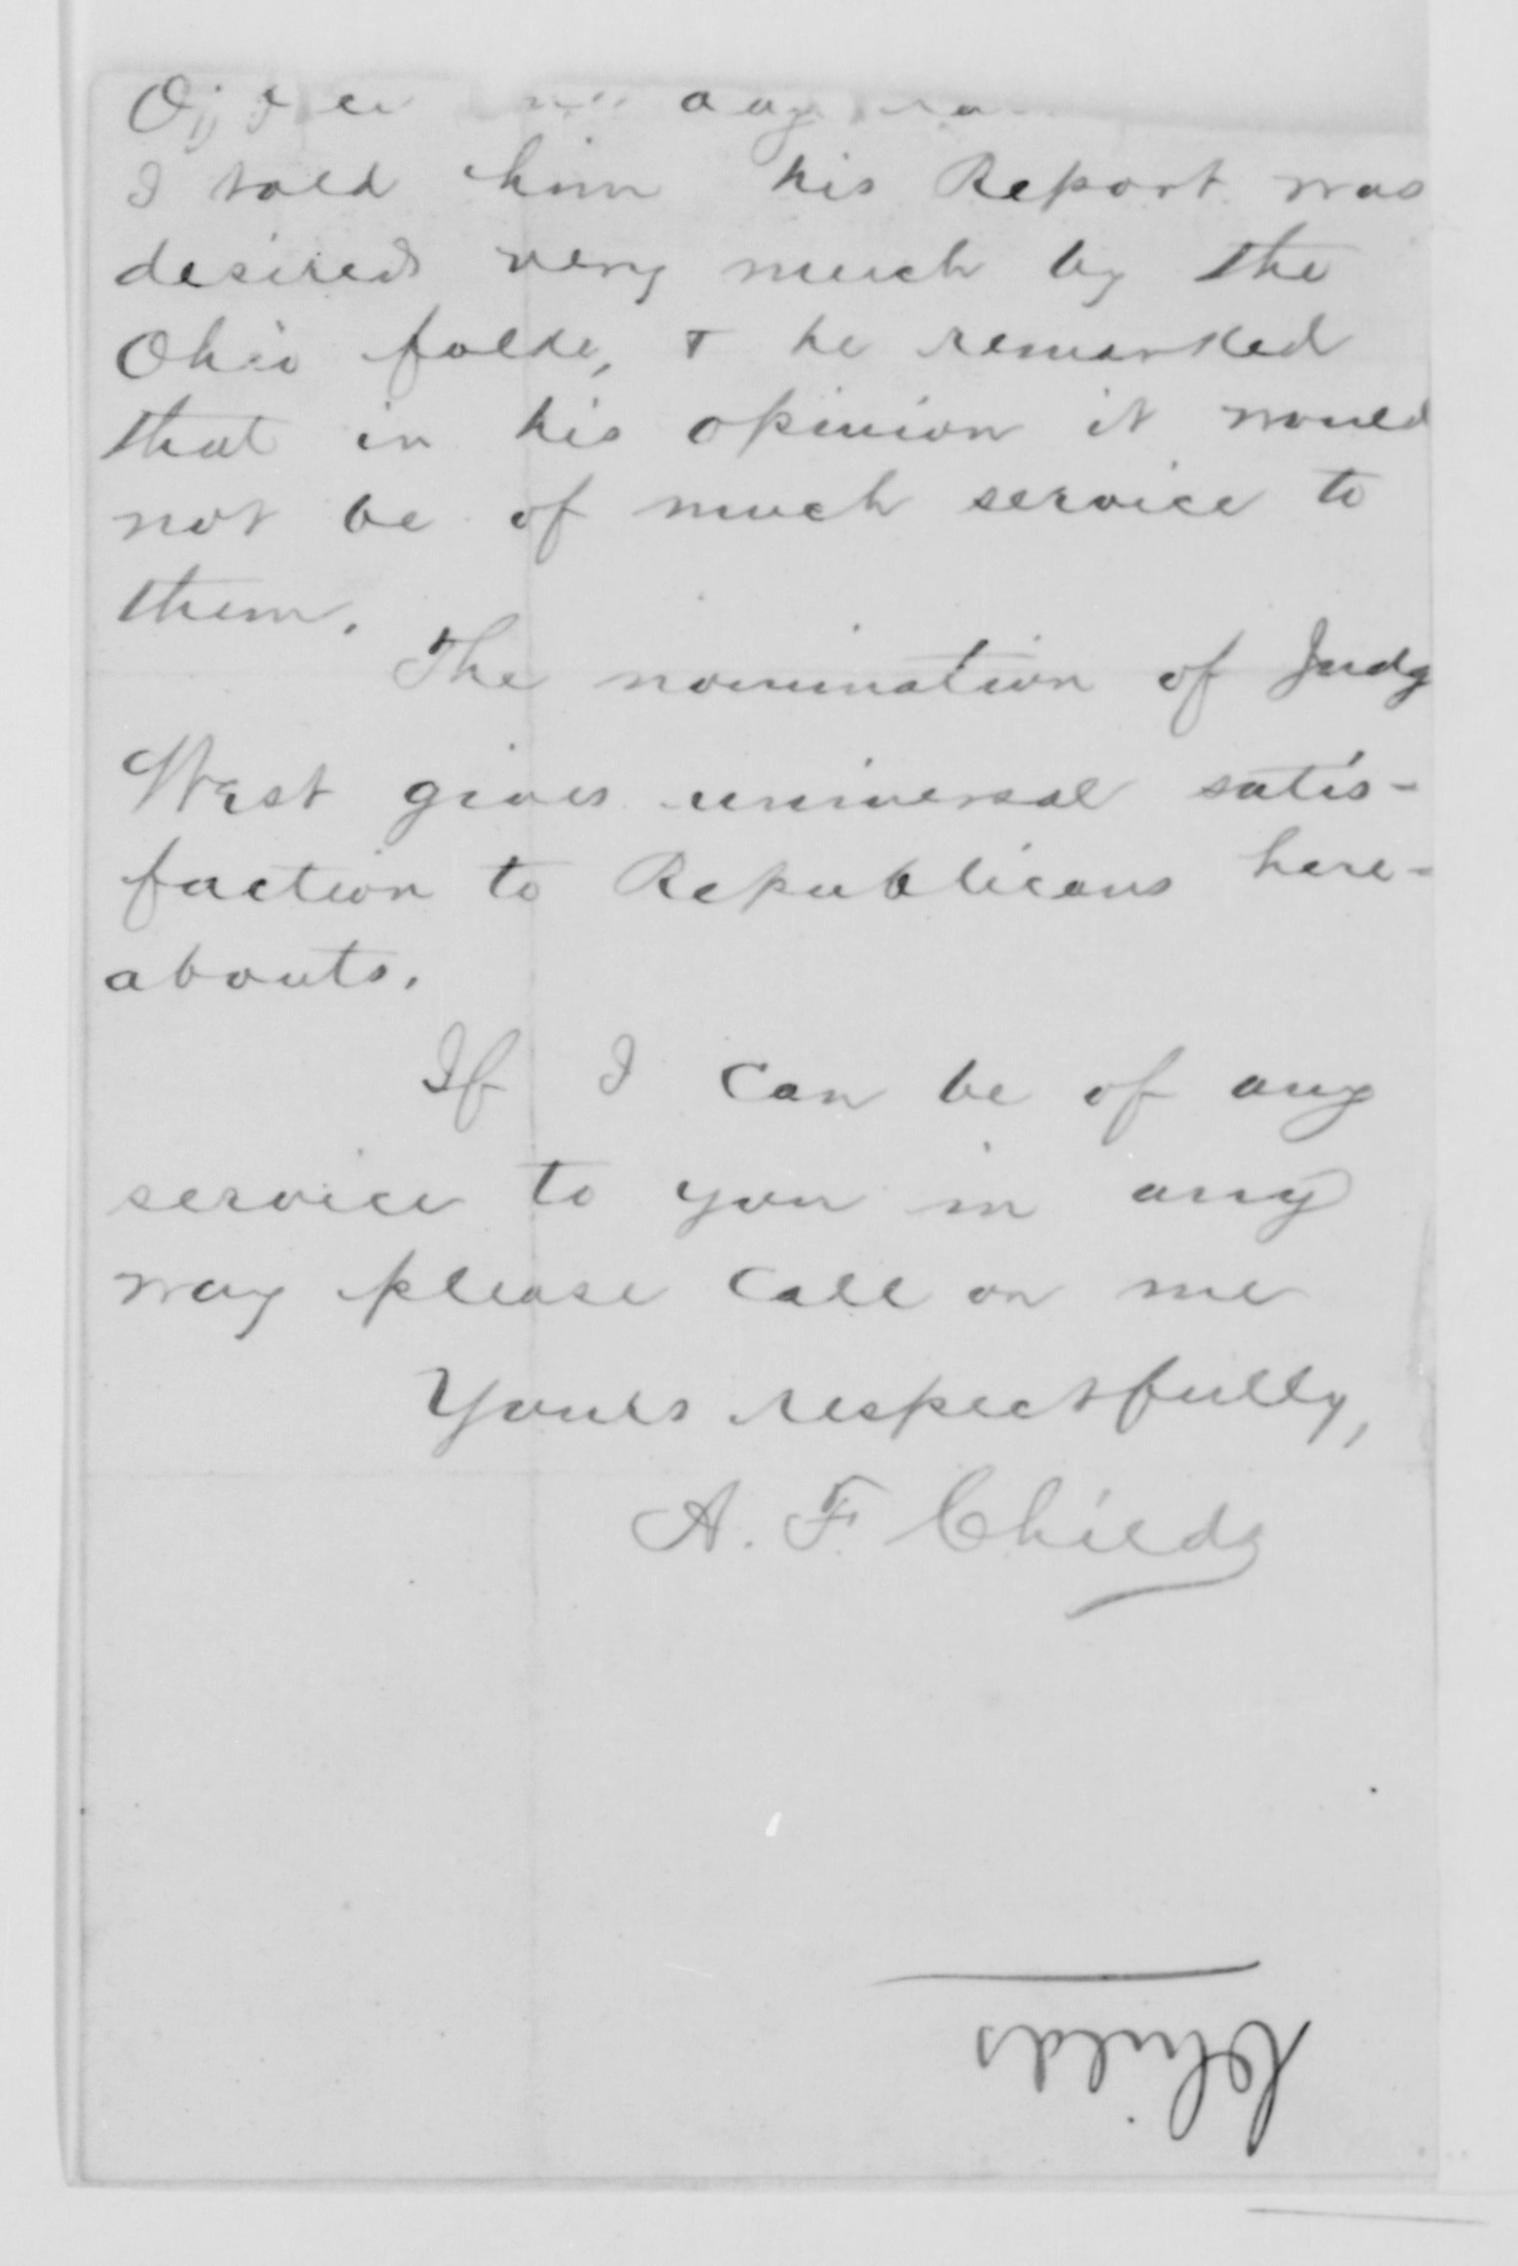 I told him his Report was
desired very much by the
Ohio folks, & he remarked
that in his opinion it would
not be of much service to
them.
The nomination of Judg
West gives universal satis-
faction to Republicans here-
abouts.
If I can be of any
service to you in any
way please call on me
Yours respectfully,
A. F. Childs
Childs